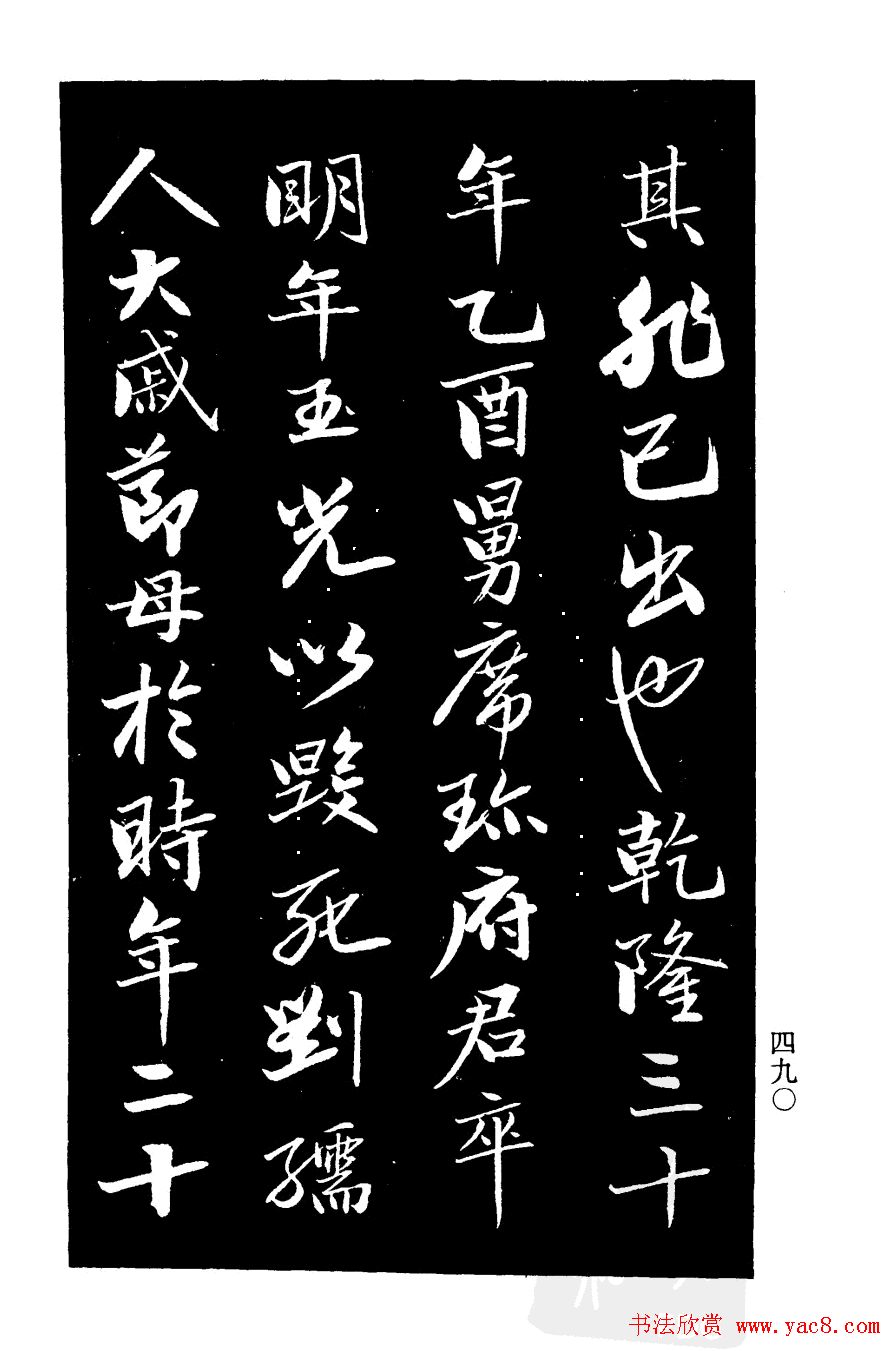 其非己出也乾隆三十
年乙酉舅席珎府君卒
明年玉光以毀死劉孺
人大戚節母於時年二十
四九〇
书法欣赏 www.yac8.com